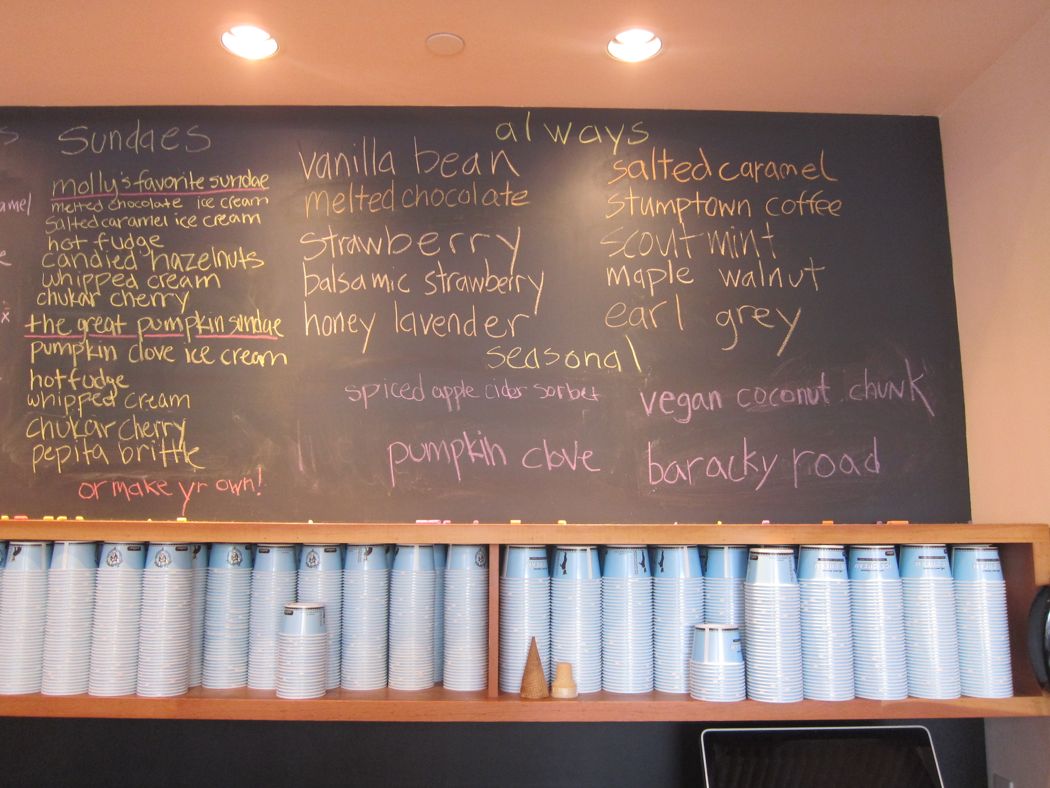 Sundaes
molly's favorite sundae
melted chocolate ice cream
salted caramel ice cream
hot fudge
candied hazelnuts
whipped cream
chukar cherry
the great pumpkin sundae
pumpkin clove ice cream
hot fudge
whipped cream
chukar cherry
pepita brittle
or make yr own!
always
vanilla bean
melted chocolate
strawberry
balsamic strawberry
honey lavender
salted caramel
stumptown coffee
scout mint
maple walnut
earl grey
seasonal
spiced apple cider sorbet
vegan coconut chunk
pumpkin clove
baracky road